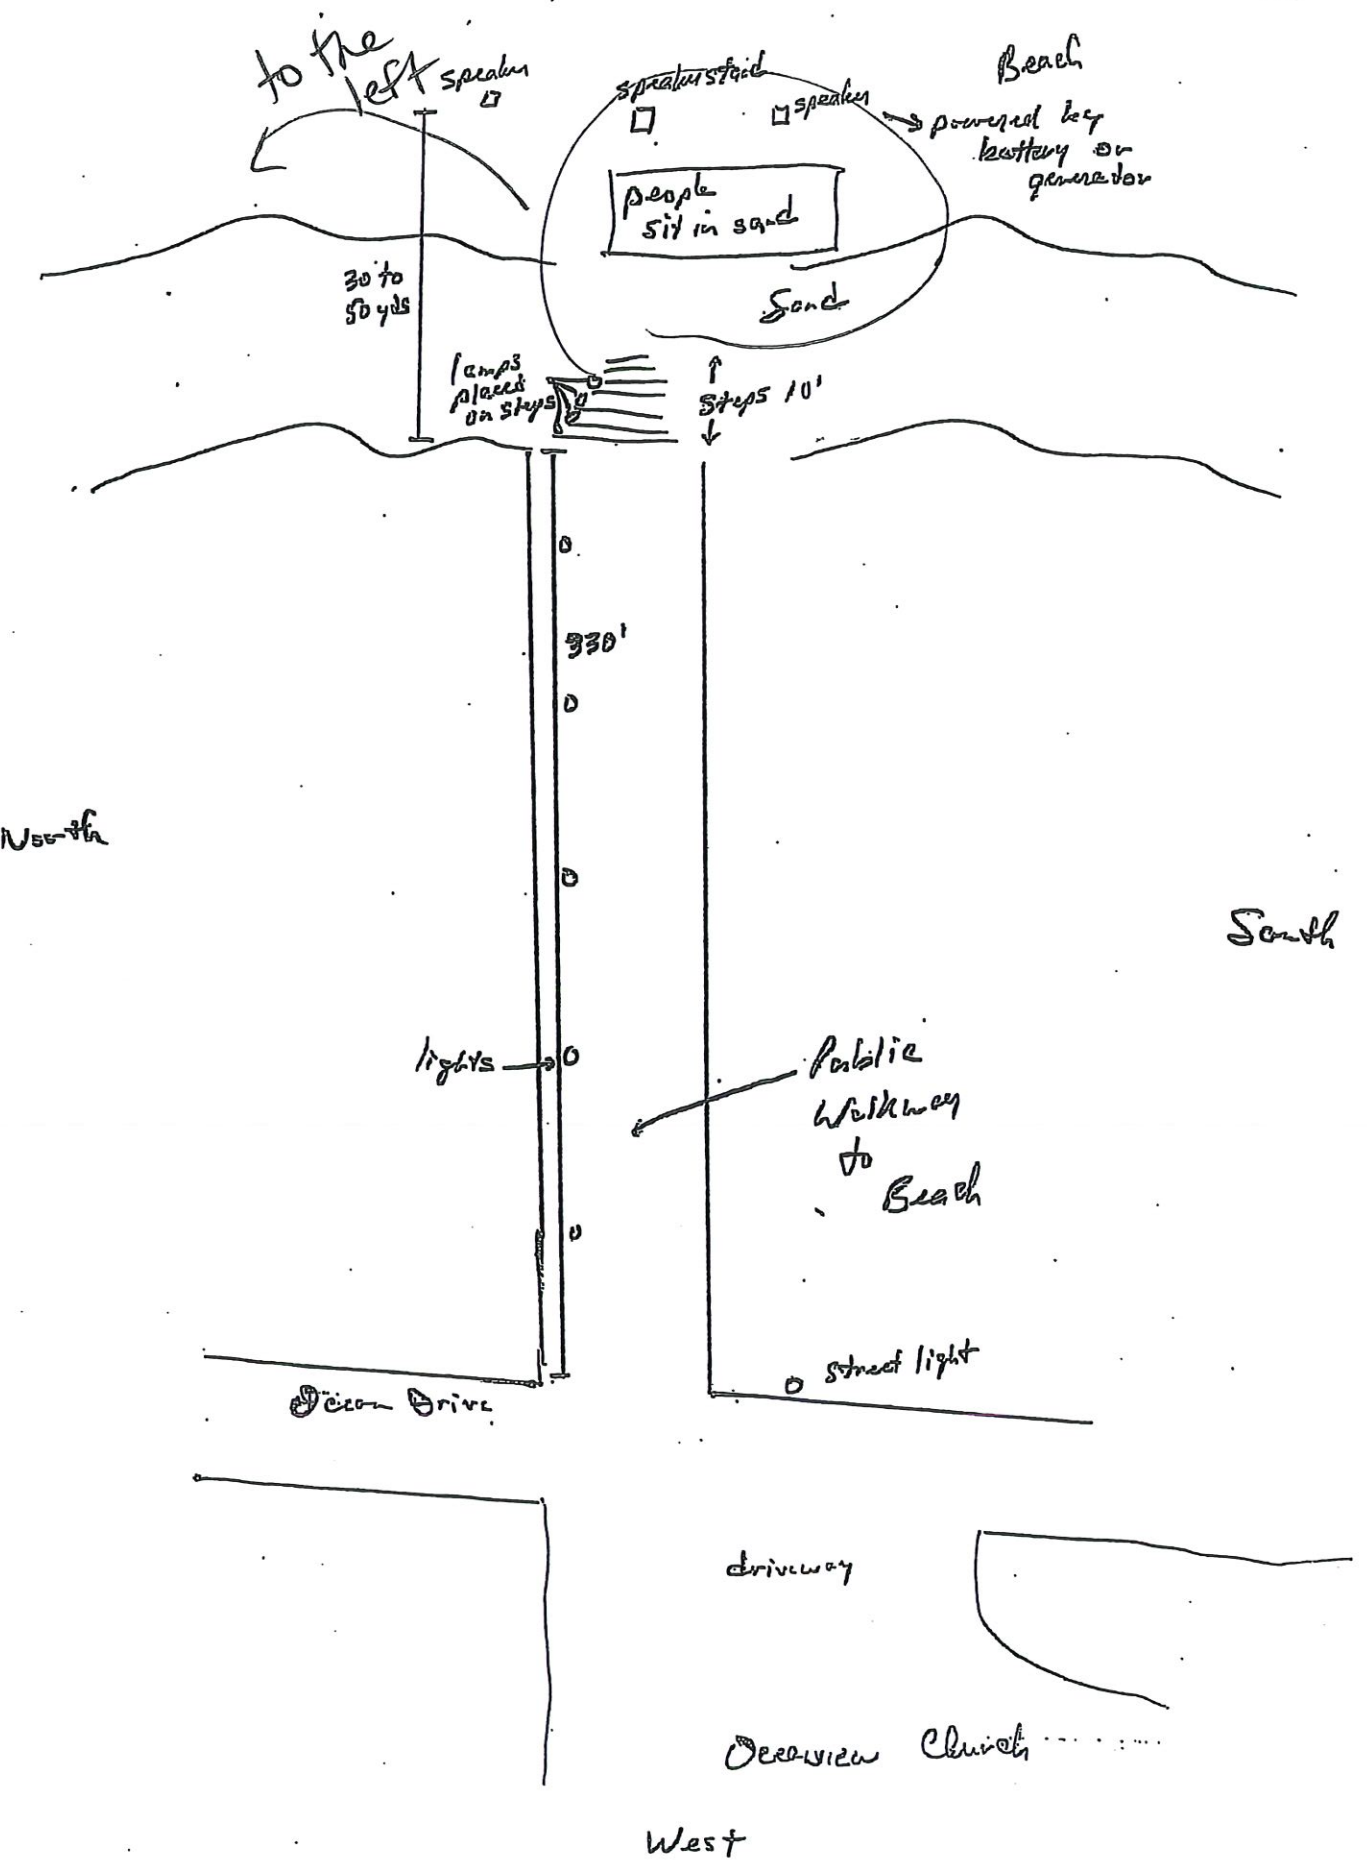 to the
left
speaker
speaker stand
speaker
Beach
powered by
battery or
generator
people
sit in sand
30 to
50 yds
Sand
lamps
placed
on steps
Steps 10'
330'
North
South
lights
Public
Walkway
to
Beach
street light
Ocean Drive
driveway
Oceanview Church
West